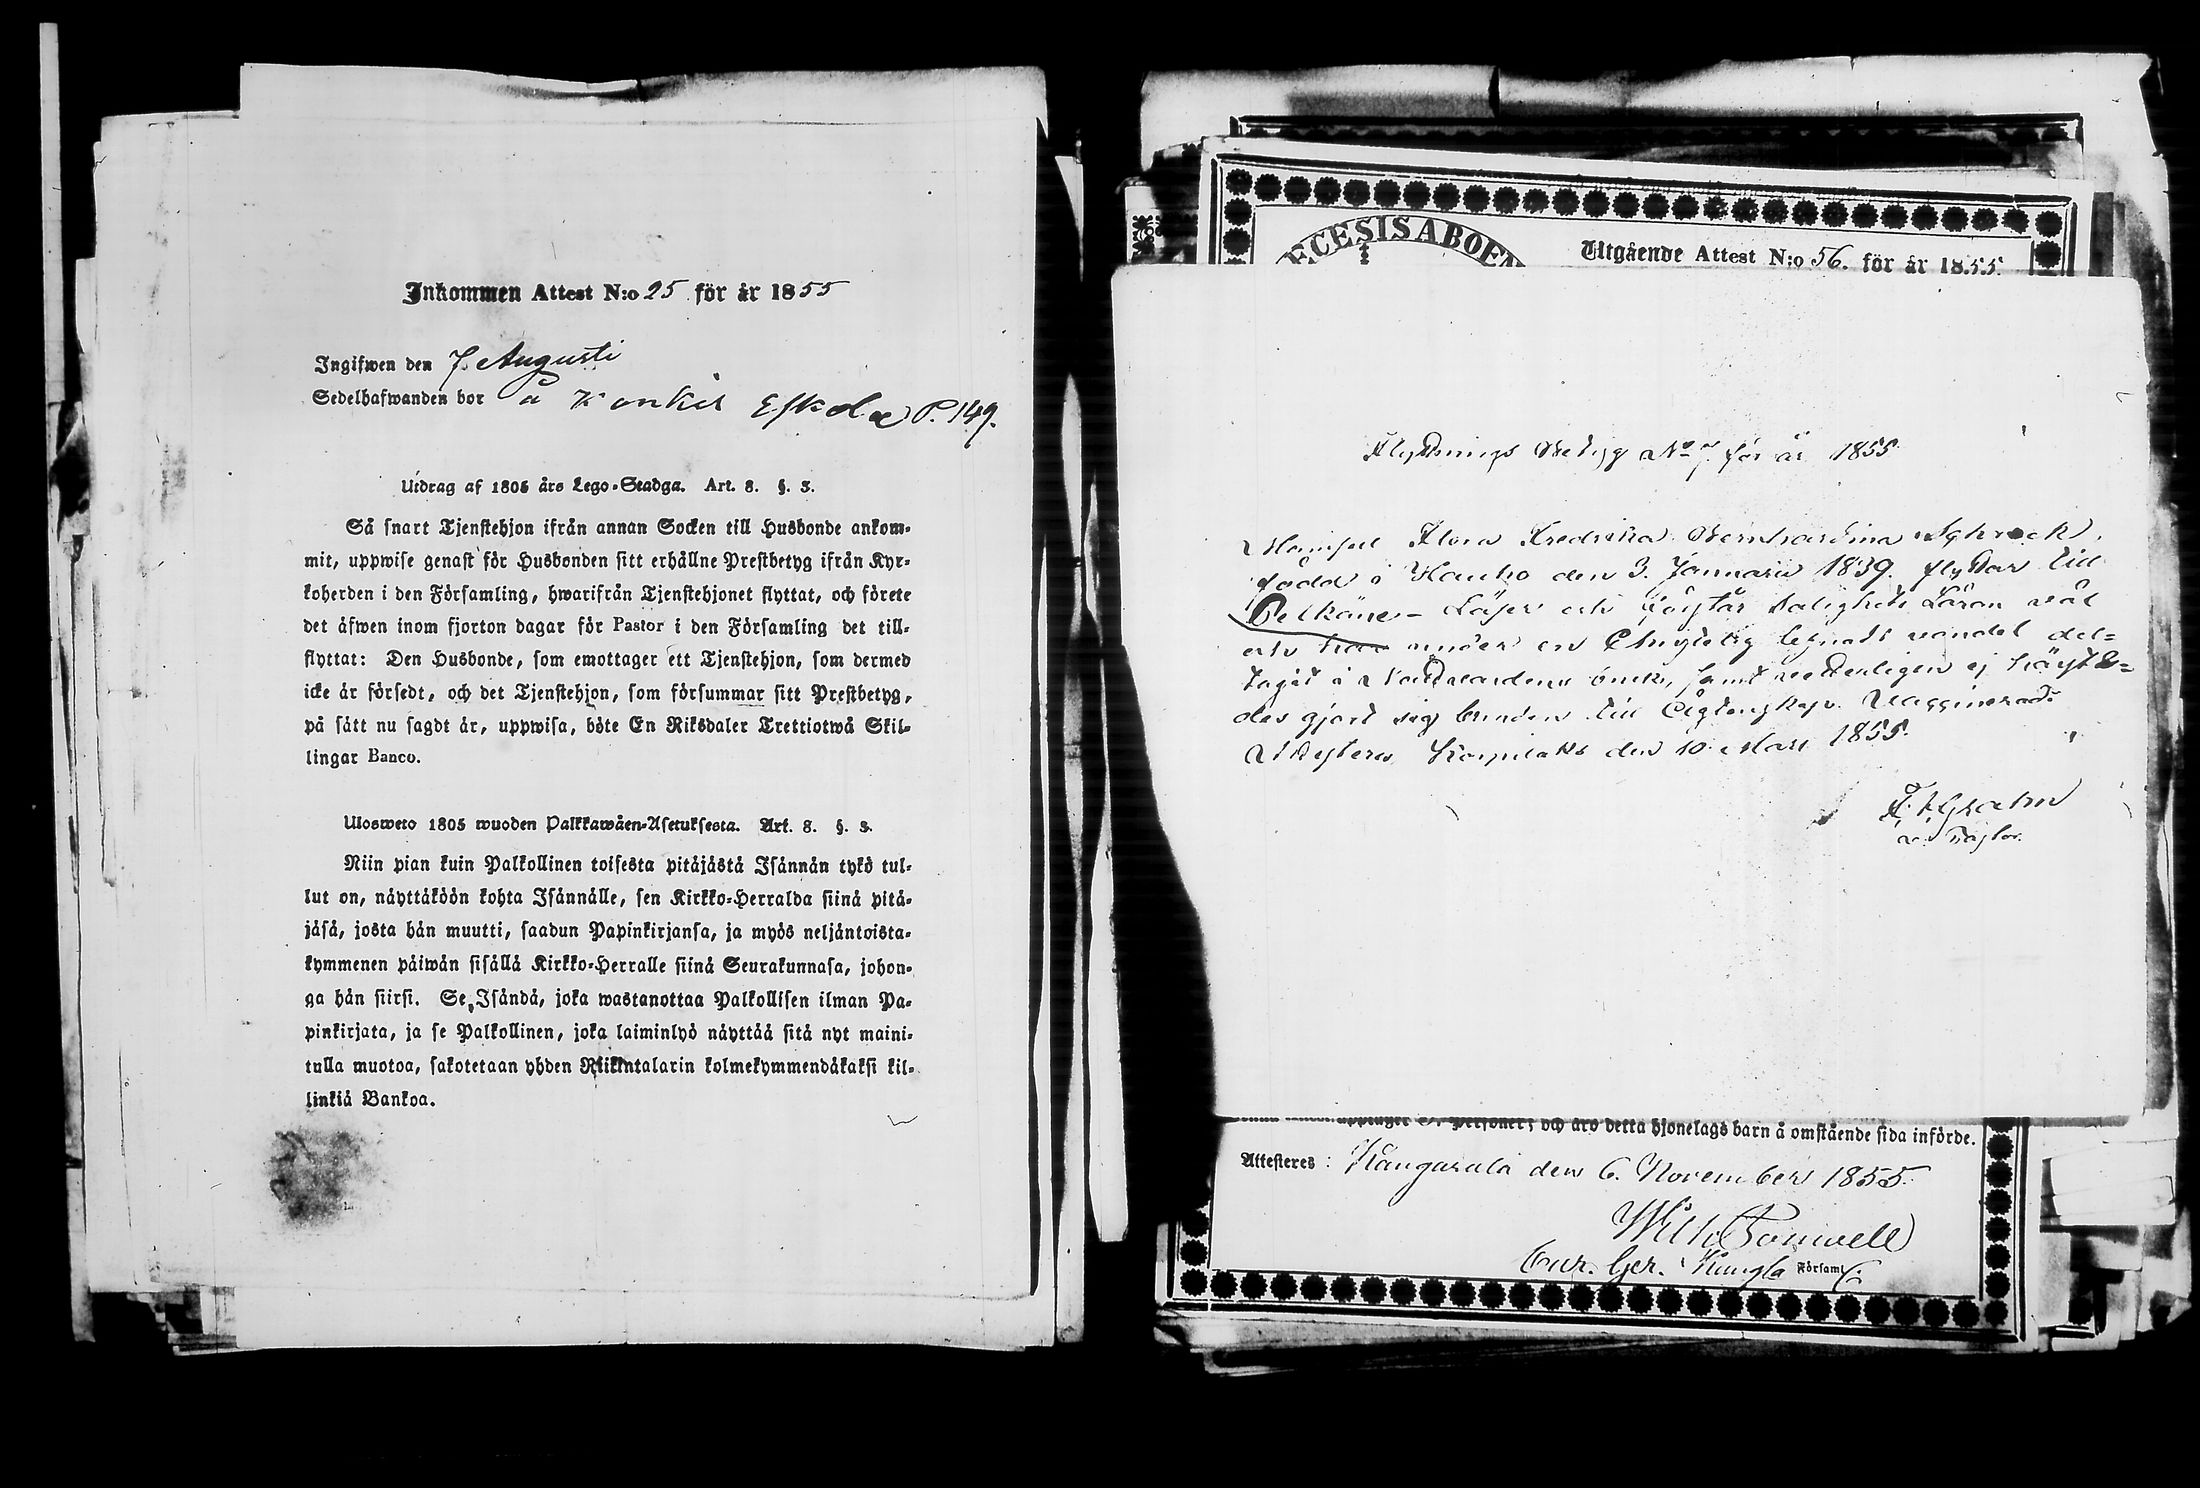 Inkommen Attest N:o 25 för år 1855
Ingifwen den 7 Augusti
Sedelhafwanden bor å Konkis Eskola P. 149.
Utdrag af 1805 års Lego-Stadga. Art. 8. §. 3.
Så snart Tjenstehjon ifrån annan Socken till Husbonde ankom-
mit, uppwise genast för Husbonden sitt erhållne Prestbetyg ifrån Kyr-
koherden i den Församling, hwarifrån Tjenstehjonet flyttat, och förete
det äfwen inom fjorton dagar för Pastor i den Församling det till-
flyttat: Den Husbonde, som emottager ett Tjenstehjon, som dermed
icke är försedt, och det Tjenstehjon, som försummar sitt Prestbetyg,
på sätt nu sagdt är, uppwisa, böte En Riksdaler Trettiotwå Skil-
lingar Banco.
Ulosweto 1805 wuoden Palkkawäen-Asetuksesta. Art. 8. §. 3.
Niin pian kuin Palkollinen toisesta pitäjästä Isännän tykö tul-
lut on, näyttäköön kohta Isännälle, sen Kirkko-Herralda siinä pitä-
jäsä, josta hän muutti, saadun Papinkirjansa, ja myös neljäntoista-
kymmenen päiwän sisällä Kirkko-Herralle siinä Seurakunnasa, johon-
ga hän siirsi. Se Isändä, joka wastanottaa Palkollisen ilman Pa-
pinkirjata, ja se Palkollinen, joka laiminlyö näyttää sitä nyt maini-
tulla muotoa, sakotetaan yhden Riikintalarin kolmekymmendäkaksi kil-
linkiä Bankoa.
ECESIS ABOEN
Utgående Attest N:o 56. för år 1855.
Flyttnings Betyg No 7 för år 1855
Mamsell Flora Fredrika Bernhardina Schrock,
född i Hauho den 3. Januarii 1839. flyttar till
Pelkäne - Läser och förstår Salighets Läran väl
och har under en Christelig lefnads vandel del-
tagit i Nattvardens bruk, samt vetterligen ej häfts-
des gjort sig bunden till Ägtenskap. Vaccinerad.
Messuby Kapell den 10 Mars 1855.
F. Grahn
v. Pastor.
personer; och äro detta hjonelags barn å omstående sida införde.
Attesteres: Kangasala den 6. November 1855.
Wilh.
Cur. Ger. Kangla Församl.